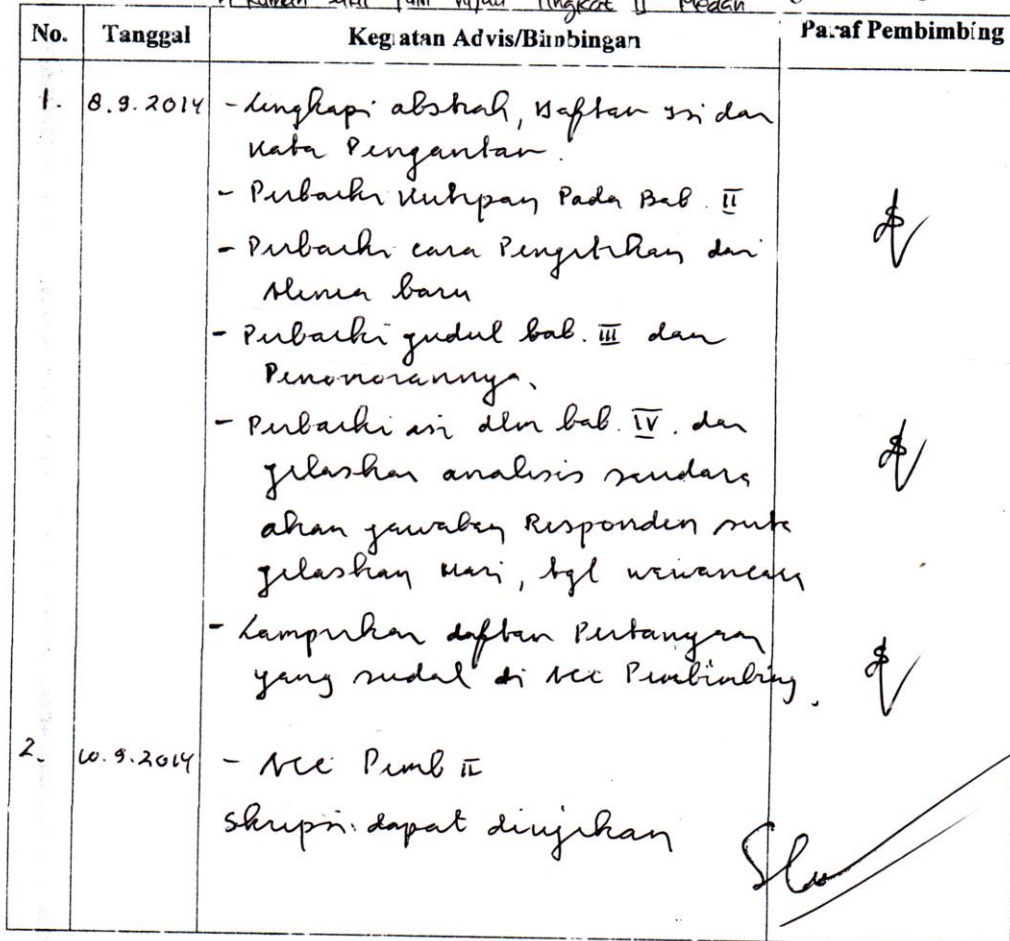 Rumah Sakit Putri Hijau Tingkat II Medan
No. Tanggal Kegiatan Advis/Bimbingan Paraf Pembimbing
1. 8.9.2014 - Lengkapi abstrak, Daftar isi dan
Kata Pengantar.
- Perbaiki Kutipan Pada Bab. II
- Perbaiki cara Pengetikan dan
alinea baru
- Perbaiki judul bab. III dan
Penomorannya.
- Perbaiki isi dlm bab. IV. dan
jelaskan analisis saudara
akan jawaban Responden serta
jelaskan Hari, tgl wawancara
- Lampirkan daftar Pertanyaan
yang sudah di Acc Pembimbing.
2. 10.9.2014 - Acc Pemb II
Skripsi dapat diujikan